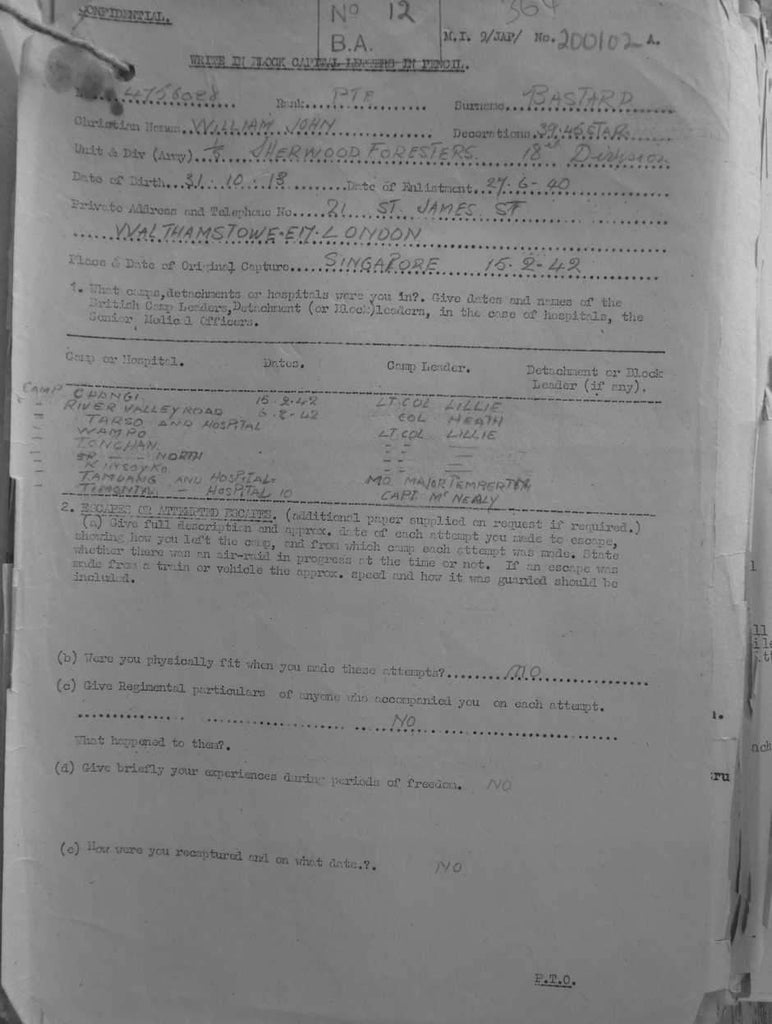 CONFIDENTIAL.
No 12
B.A.
364
M.I. 9/JAP/ No. 200102 A.
WRITE IN BLOCK CAPITAL LETTERS IN PENCIL.
Rank... PTE ... Surname... BASTARD
Christian Names... WILLIAM JOHN ... Decorations 39-45 STAR
Unit & Div (Army)... SHERWOOD FORESTERS. 18th Division
Date of Birth... 31. 10. 18 ... Date of Enlistment. 27-6-40
Private Address and Telephone No... 21 ST JAMES ST
WALTHAMSTOWE. E17. LONDON
Place & Date of Original Capture... SINGAPORE 15-2-42
1. What camps, detachments or hospitals were you in?. Give dates and names of the
British Camp Leaders, Detachment (or Block) leaders, in the case of hospitals, the
Senior Medical Officers.
Camp or Hospital. Dates. Camp Leader. Detachment or Block
Leader (if any).
CAMP CHANGI 15-2-42 LT. COL LILLIE
RIVER VALLEY ROAD COL HEATH
TARSO AND HOSPITAL
WAMPO LT. COL LILLIE
TONCHAN
NORTH
KINSOYKO
TAMUANG AND HOSPITAL MO MAJOR PEMBERTON
HOSPITAL 10 CAPT MCNEALY
2. ESCAPES OR ATTEMPTED ESCAPES. (additional paper supplied on request if required.)
(a) Give full description and approx. date of each attempt you made to escape,
showing how you left the camp, and from which camp each attempt was made. State
whether there was an air-raid in progress at the time or not. If an escape was
made from a train or vehicle the approx. speed and how it was guarded should be
included.
(b) Were you physically fit when you made these attempts?... NO
(c) Give Regimental particulars of anyone who accompanied you on each attempt.
NO
What happened to them?.
(d) Give briefly your experiences during periods of freedom. NO
(e) How were you recaptured and on what date.?. NO
P.T.O.